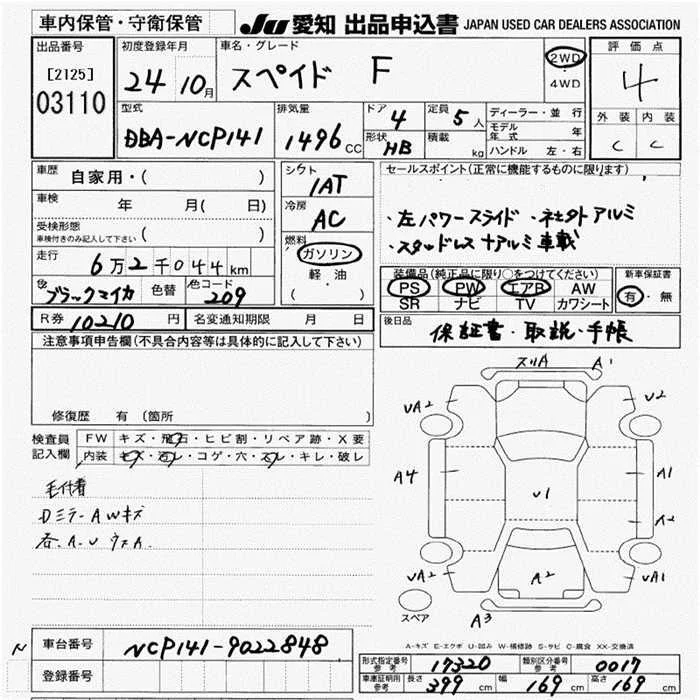 車内保管・守衛保管 JU 愛知 出品申込書 JAPAN USED CAR DEALERS ASSOCIATION
出品番号 初度登録年月 車名・グレード 評価点
[2125] 24 10月 スペイド F 2WD・4WD 4
03110
型式 排気量 ドア 4 定員 5人 ディーラー・並行 外装 内装
DBA-NCP141 1496cc 形状 HB 積載 kg モデル年式 年 C C
ハンドル 左・右
車歴 自家用・( ) シフト 1AT セールスポイント(正常に機能するものに限ります)
車検 年 月( 日) 冷房 AC ・左パワースライド ・ネセクトアルミ
受検形態 車検付きのみ記入して下さい ( ) 燃料 ガソリン ・スタッドレス+アルミ車載
走行 6万2千044km 軽油 ( )
装備品(純正品に限り○をつけてください) 新車保証書
色 ブラックマイカ 色替 色コード 209 PS PW エアB AW 有・無
SR ナビ TV カワシート
R券 10210円 名変通知期限 月 日 後日品 保証書・取説・手帳
注意事項申告欄(不具合内容等は具体的に記入して下さい)
修復歴 有 (箇所 )
検査員記入欄 FW キズ・飛石・ヒビ割・リペア跡・X要
内装 キズ・汚レ・コゲ・穴・スレ・キレ・破レ
毛付着
Dミラー AWキズ
各.A.U
スリA A1
UA2 U2
A4 U1 A1
A2
UA2 A2 UA1
スペア A3
A-キズ E-エクボ U-凹み W-補修跡 S-サビ C-腐食 XX-交換済
N 車台番号 NCP141-9022848
登録番号
形式指定番号 参考 17320 類別区分番号 参考 0017
車庫証明用 参考 長さ 399cm 幅 169cm 高さ 169cm